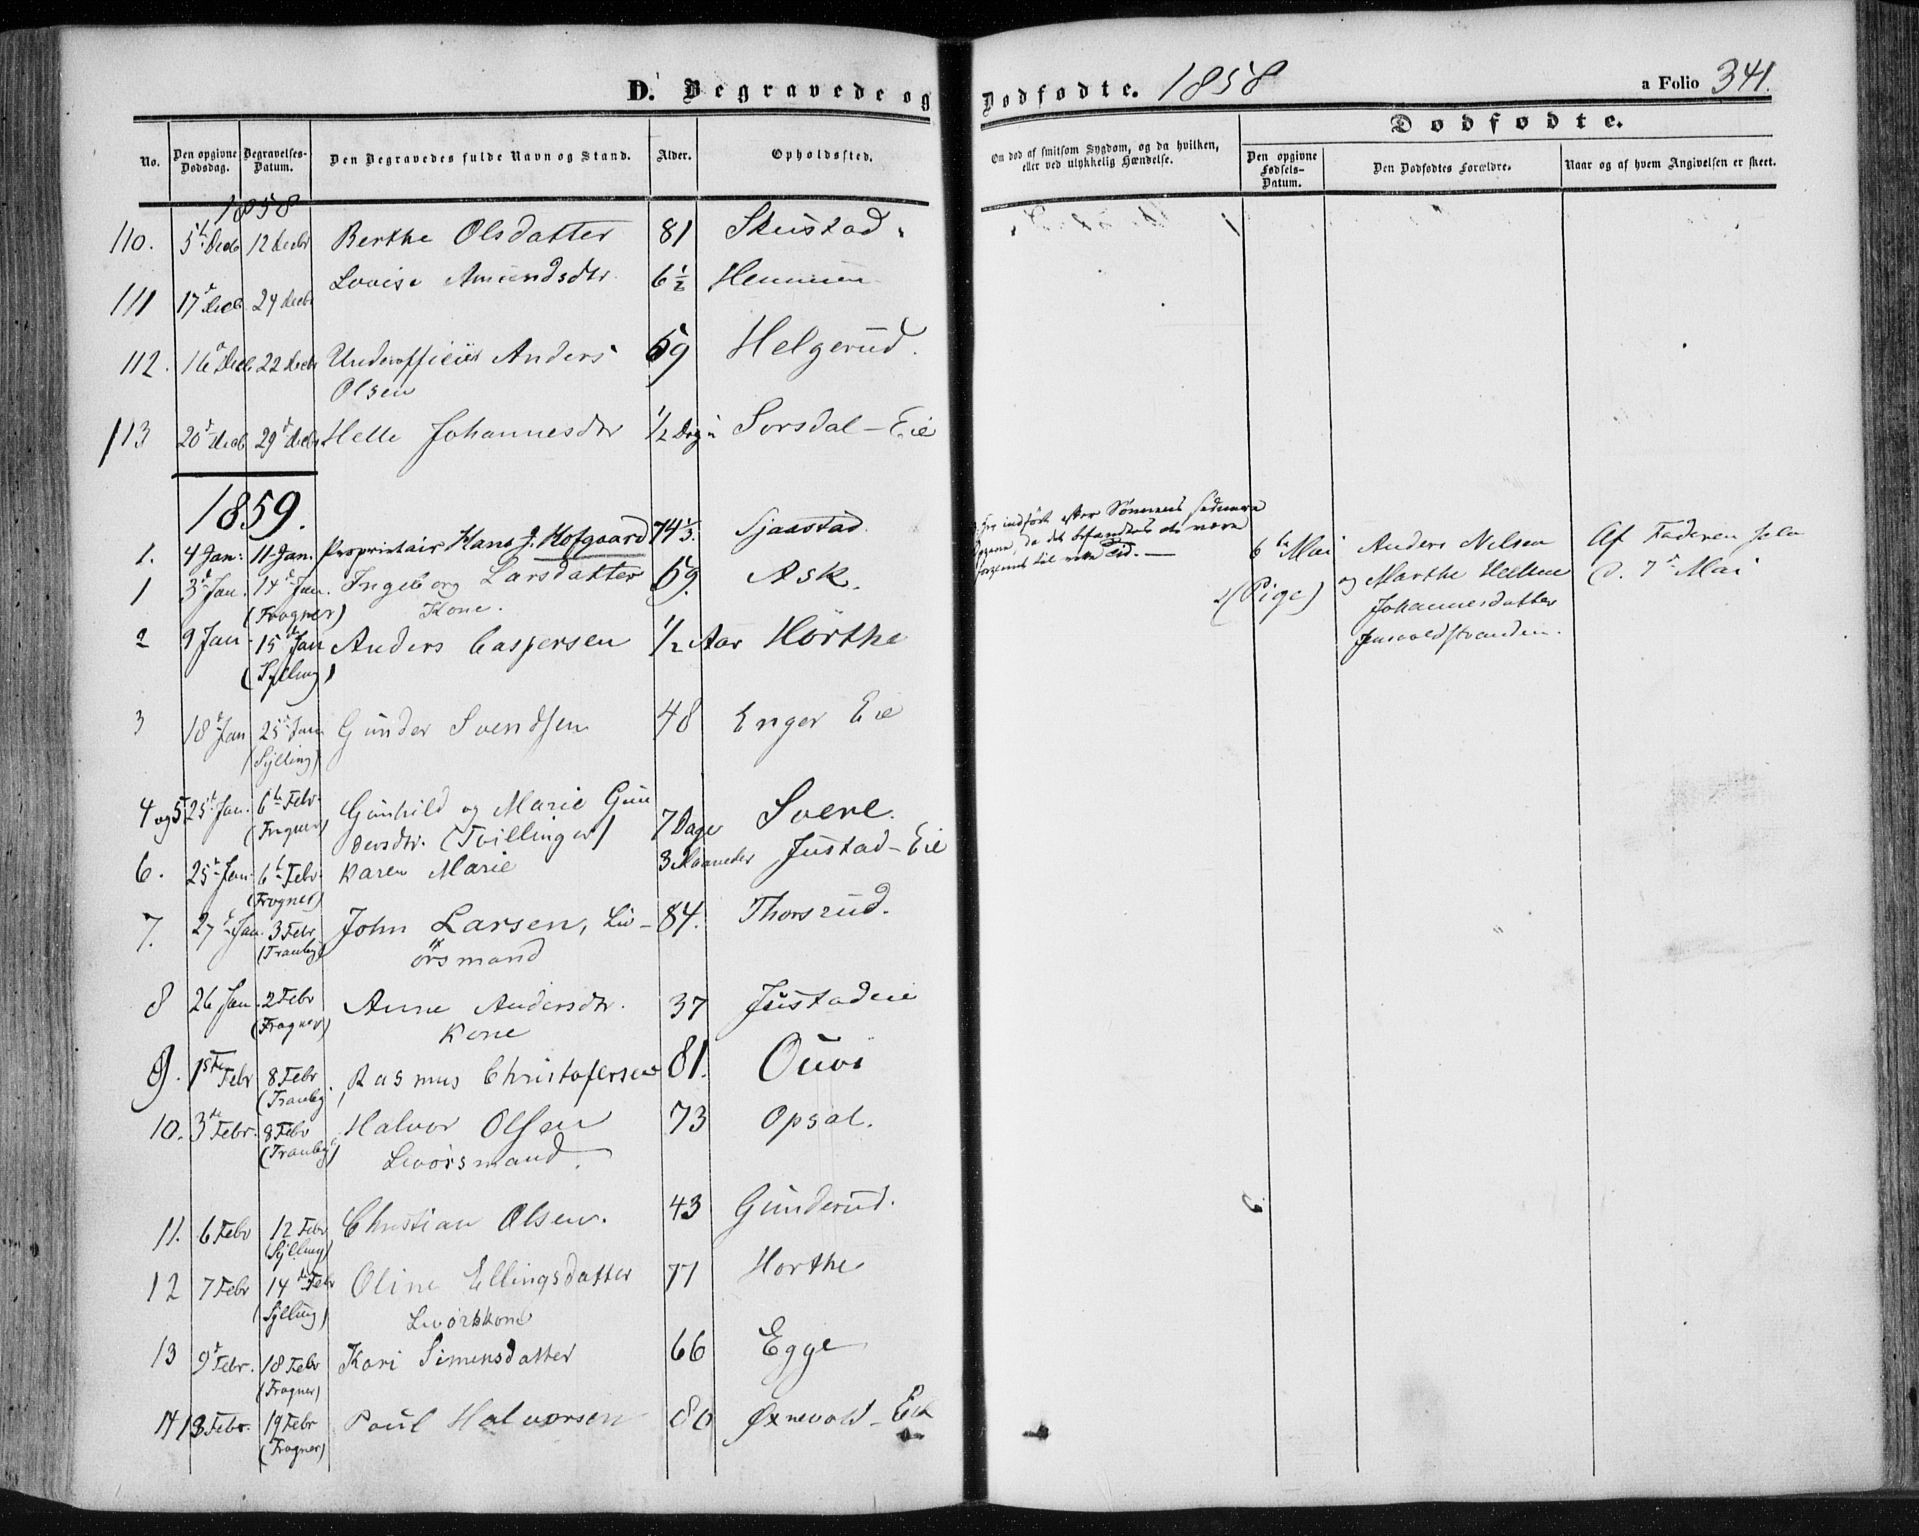 D. Begravede og Dødfødte. 1858
a Folio 341.
No.
Den opgivne Dødsdag.
Begravelses-Datum.
Den Begravedes fulde Navn og Stand.
Alder.
Opholdssted.
Om død af smitsom Sygdom, og da hvilken, eller ved ulykkelig Hændelse.
Dødfødte.
Den opgivne Fødsels-Datum.
Den Dødfødtes Forældre.
Naar og af hvem Angivelsen er skeet.
1858
110. 5t Decb 12 Decbr Berthe Olsdatter 81 Skustad
111 17d Decb 24 Decbr Lovise Amundsdtr. 6½ Hennum
112. 16d Decb 22 Decbr Underofficier Anders 59 Helgerud.
Olsen
113 20d Decb 29d Decbr Helle Johannesdtr ½ Døgn Sørsdal-Eie
1859.
1. 4 Jan: 11 Jan. Proprietair Hans J. Hofgaard 74⅓ Sjaastad
1 3d Jan. 14d Jan. Ingeborg Larsdatter 59. Ask.
(Frogner) Kone.
2 9 Jan 15d Jan Anders Caspersen ½ Aar Hörthe
(Sylling)
3 18d Jan 25d Jan Gunder Svendsen 48 Enger Eie
(Sylling)
4 og 5 25d Jan. 6te Febr. Gunhild og Marie Gun
(Frogner) dersdtr. (Tvillinger) 7 Dage Svere.
6. 25d Jan. 6te Febr. Karen Marie 3 Maaneder Justad-Eie
(Frogner)
7. 27d Jan. 3 Febr John Larsen, Liv- 84. Thorsrud.
(Tranby) örsmand
8 26 Jan 2 Febr Anne Andersdtr. 37 Justadeie
(Frogner) Kone
9. 1ste Febr 8 Febr Rasmus Christofersen 81. Ouvi
(Tranby)
10. 3de Febr. 8 Febr Halvor Olsen 73 Opsal.
(Tranby) Livörsmand.
11. 6 Febr 12 Febr Christian Olsen. 43 Gunderud.
(Sylling)
12 7 Febr 14de Febr Oline Ellingsdatter 77 Horthe
(Sylling) Livörskone
13 9d Febr. 18 Febr Kari Simensdatter 66 Egge
(Frogner)
14 13 Febr. 19 Febr Paul Halvorsen 80 Øxnevold-Eie
(Frogner)
indført efter Sønnens
da det befandtes at være
til rette Tid.
6te Mai Anders Nilsen Af Faderen selv
(Pige) og Marthe Helene d. 7d Mai
Johannesdatter